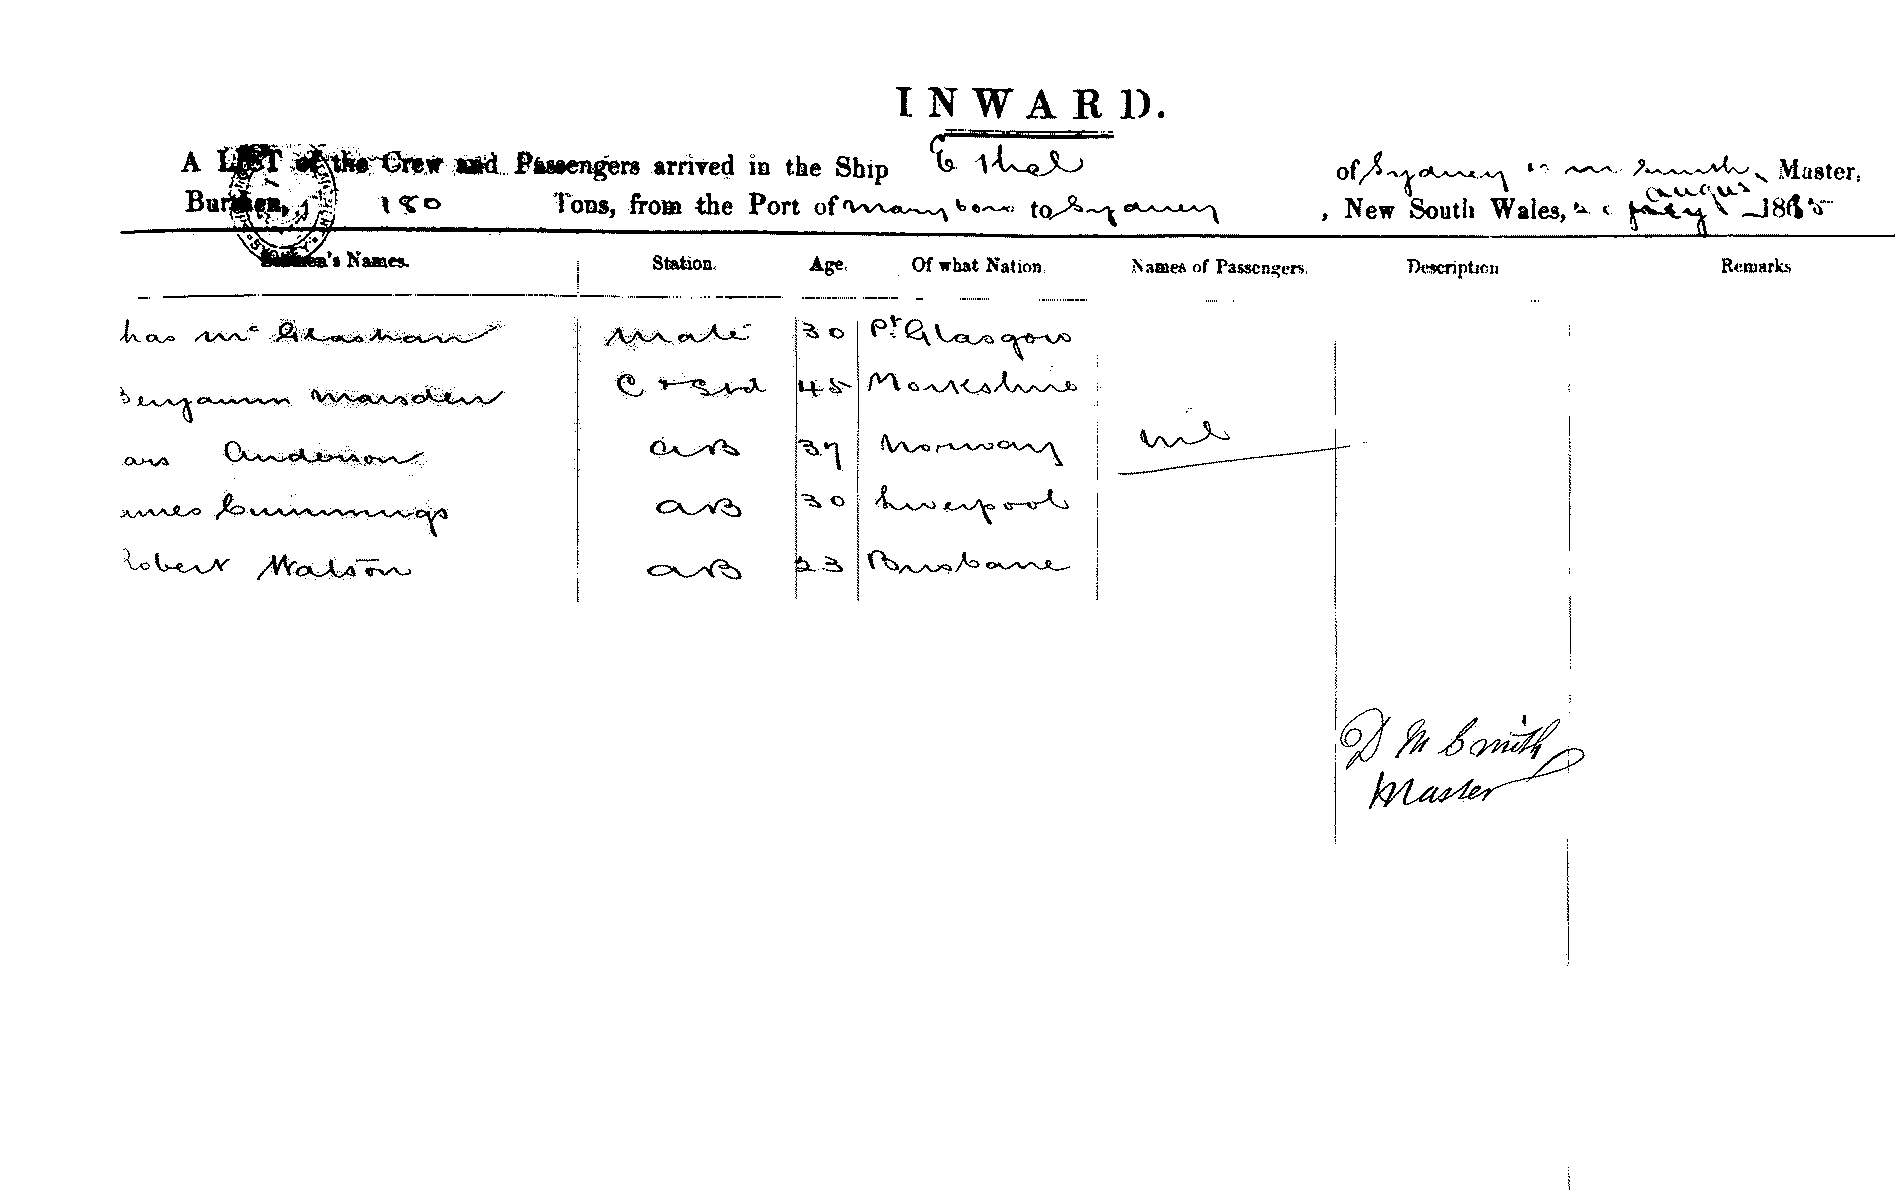 INWARD.
A LIST of the Crew and Passengers arrived in the Ship Ethel of Sydney D M Smith, Master,
Burthen, 180 Tons, from the Port of Maryboro to Sydney, New South Wales, July August 1865
Seamen's Names. Station. Age. Of what Nation. Names of Passengers. Description Remarks
has Mc Glashan Mate 30 Pt Glasgow
Benjamin Marsden C & Std 45 Yorkshire
ars Anderson AB 37 Norway nil
ames Cummings AB 30 Liverpool
Robert Watson AB 23 Brisbane
D M Smith
Master